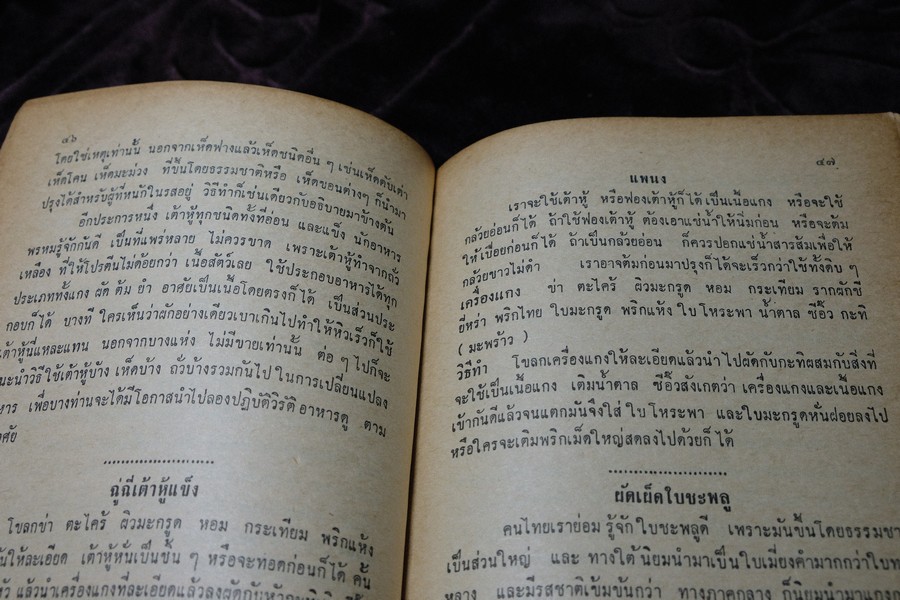 ๔๖
โดยใช่เหตุเท่านั้น นอกจากเห็ดฟางแล้วเห็ดชนิดอื่น ๆ เช่นเห็ดตับเต่า
เห็ดโคน เห็ดมะม่วง ที่ขึ้นโดยธรรมชาติหรือ เห็ดขอนต่างๆ ก็นำมา
ปรุงได้สำหรับผู้ที่หนักในรสอยู่ วิธีทำก็เช่นเดียวกับอธิบายมาข้างต้น
อีกประการหนึ่ง เต้าหู้ทุกชนิดทั้งที่อ่อน และแข็ง นักอาหาร
พรหมรู้จักกันดี เป็นที่แพร่หลาย ไม่ควรขาด เพราะเต้าหู้ทำจากถั่ว
เหลือง ที่ให้โปรตีนไม่ด้อยกว่า เนื้อสัตว์เลย ใช้ประกอบอาหารได้ทุก
ประเภททั้งแกง ผัด ต้ม ยำ อาศัยเป็นเนื้อโดยตรงก็ได้ เป็นส่วนประ
กอบก็ได้ บางที ใครเห็นว่าผักอย่างเดียวเบาเกินไปทำให้หิวเร็วก็ใช้
เต้าหู้นี่แหละแทน นอกจากบางแห่ง ไม่มีขายเท่านั้น ต่อ ๆ ไปก็จะ
แนะนำวิธีใช้เต้าหู้บ้าง เห็ดบ้าง ถั่วบ้างรวมกันไป ในการเปลี่ยนแปลง
หาร เพื่อบางท่านจะได้มีโอกาสนำไปลองปฏิบัติวิรัติ อาหารดู ตาม
ศัย
ฉู่ฉี่เต้าหู้แข็ง
โขลกข่า ตะไคร้ ผิวมะกรูด หอม กระเทียม พริกแห้ง
ให้ละเอียด เต้าหู้หั่นเป็นชิ้น ๆ หรือจะทอดก่อนก็ได้ คั้น
แล้วนำเครื่องแกงที่ละเอียดแล้วลงผัดกับหัวกะทิ
๔๗
แพนง
เราจะใช้เต้าหู้ หรือฟองเต้าหู้ก็ได้ เป็นเนื้อแกง หรือจะใช้
กล้วยอ่อนก็ได้ ถ้าใช้ฟองเต้าหู้ ต้องเอาแช่น้ำให้นิ่มก่อน หรือจะต้ม
ให้เปื่อยก่อนก็ได้ ถ้าเป็นกล้วยอ่อน ก็ควรปอกแช่น้ำสารส้มเพื่อให้
กล้วยขาวไม่ดำ เราอาจต้มก่อนมาปรุงก็ได้จะเร็วกว่าใช้ทั้งดิบ ๆ
เครื่องแกง ข่า ตะไคร้ ผิวมะกรูด หอม กระเทียม รากผักชี
ยี่หร่า พริกไทย ใบมะกรูด พริกแห้ง ใบ โหระพา น้ำตาล ซีอิ๊ว กะทิ
( มะพร้าว )
วิธีทำ โขลกเครื่องแกงให้ละเอียดแล้วนำไปผัดกับกะทิผสมกับสิ่งที่
จะใช้เป็นเนื้อแกง เติมน้ำตาล ซีอิ๊วสังเกตว่า เครื่องแกงและเนื้อแกง
เข้ากันดีแล้วจนแตกมันจึงใส่ ใบ โหระพา และใบมะกรูดหั่นฝอยลงไป
หรือใครจะเติมพริกเม็ดใหญ่สดลงไปด้วยก็ได้
ผัดเผ็ดใบชะพลู
คนไทยเราย่อมรู้จักใบชะพลูดี เพราะมันขึ้นโดยธรรมชา
เป็นส่วนใหญ่ และ ทางใต้ นิยมนำมาเป็นใบเมี่ยงคำมากกว่าใบท
หลาง และมีรสชาติเข้มข้นกว่า ทางภาคกลาง ก็นิยมนำมาแกง